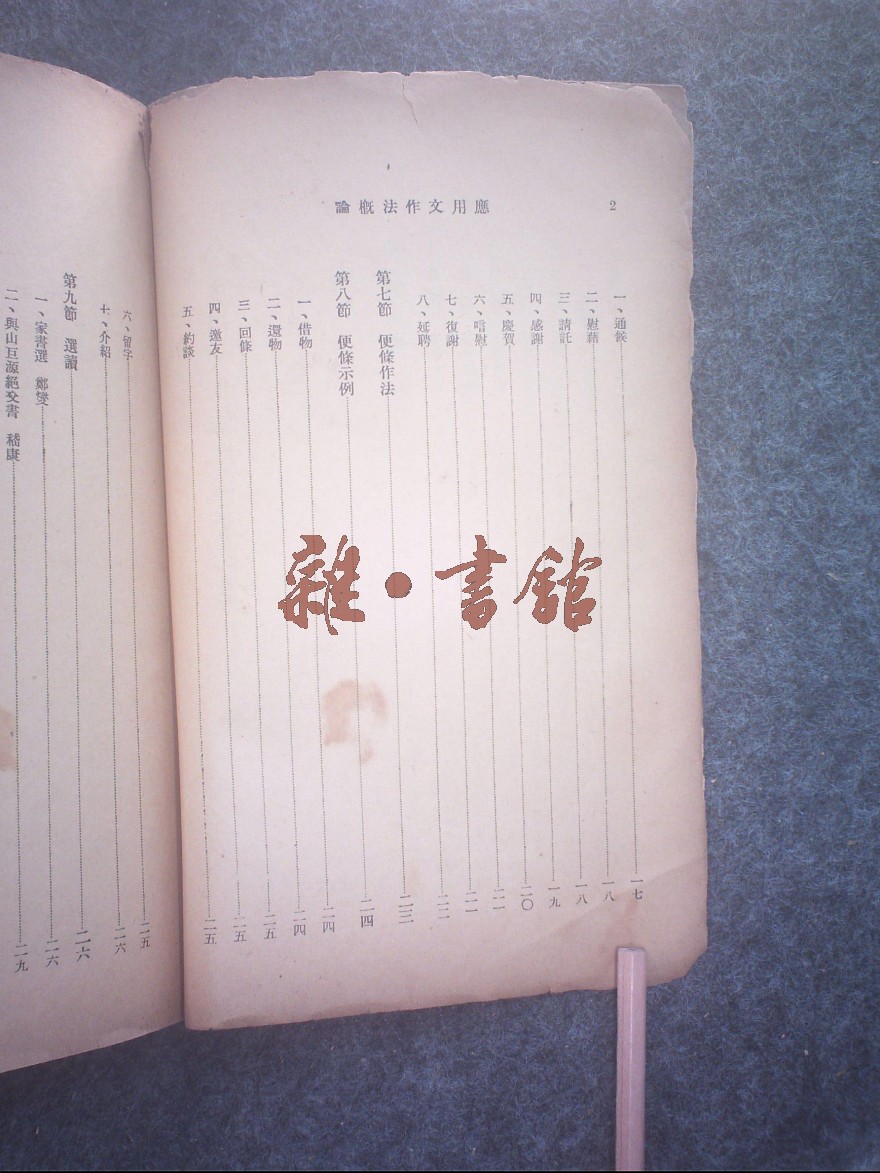 應用文作法概論
2
一、通候 一七
二、慰藉 一八
三、請託 一八
四、感謝 一九
五、慶賀 二〇
六、唁慰 二一
七、復謝 二一
八、延聘 二二
第七節 便條作法 二三
第八節 便條示例 二四
一、借物 二四
二、還物 二四
三、回條 二五
四、邀友 二五
五、約談 二五
六、留字 二五
七、介紹 二六
第九節 選讀 二六
一、家書選 鄭燮 二六
二、與山巨源絕交書 嵇康 二九
雜·書館